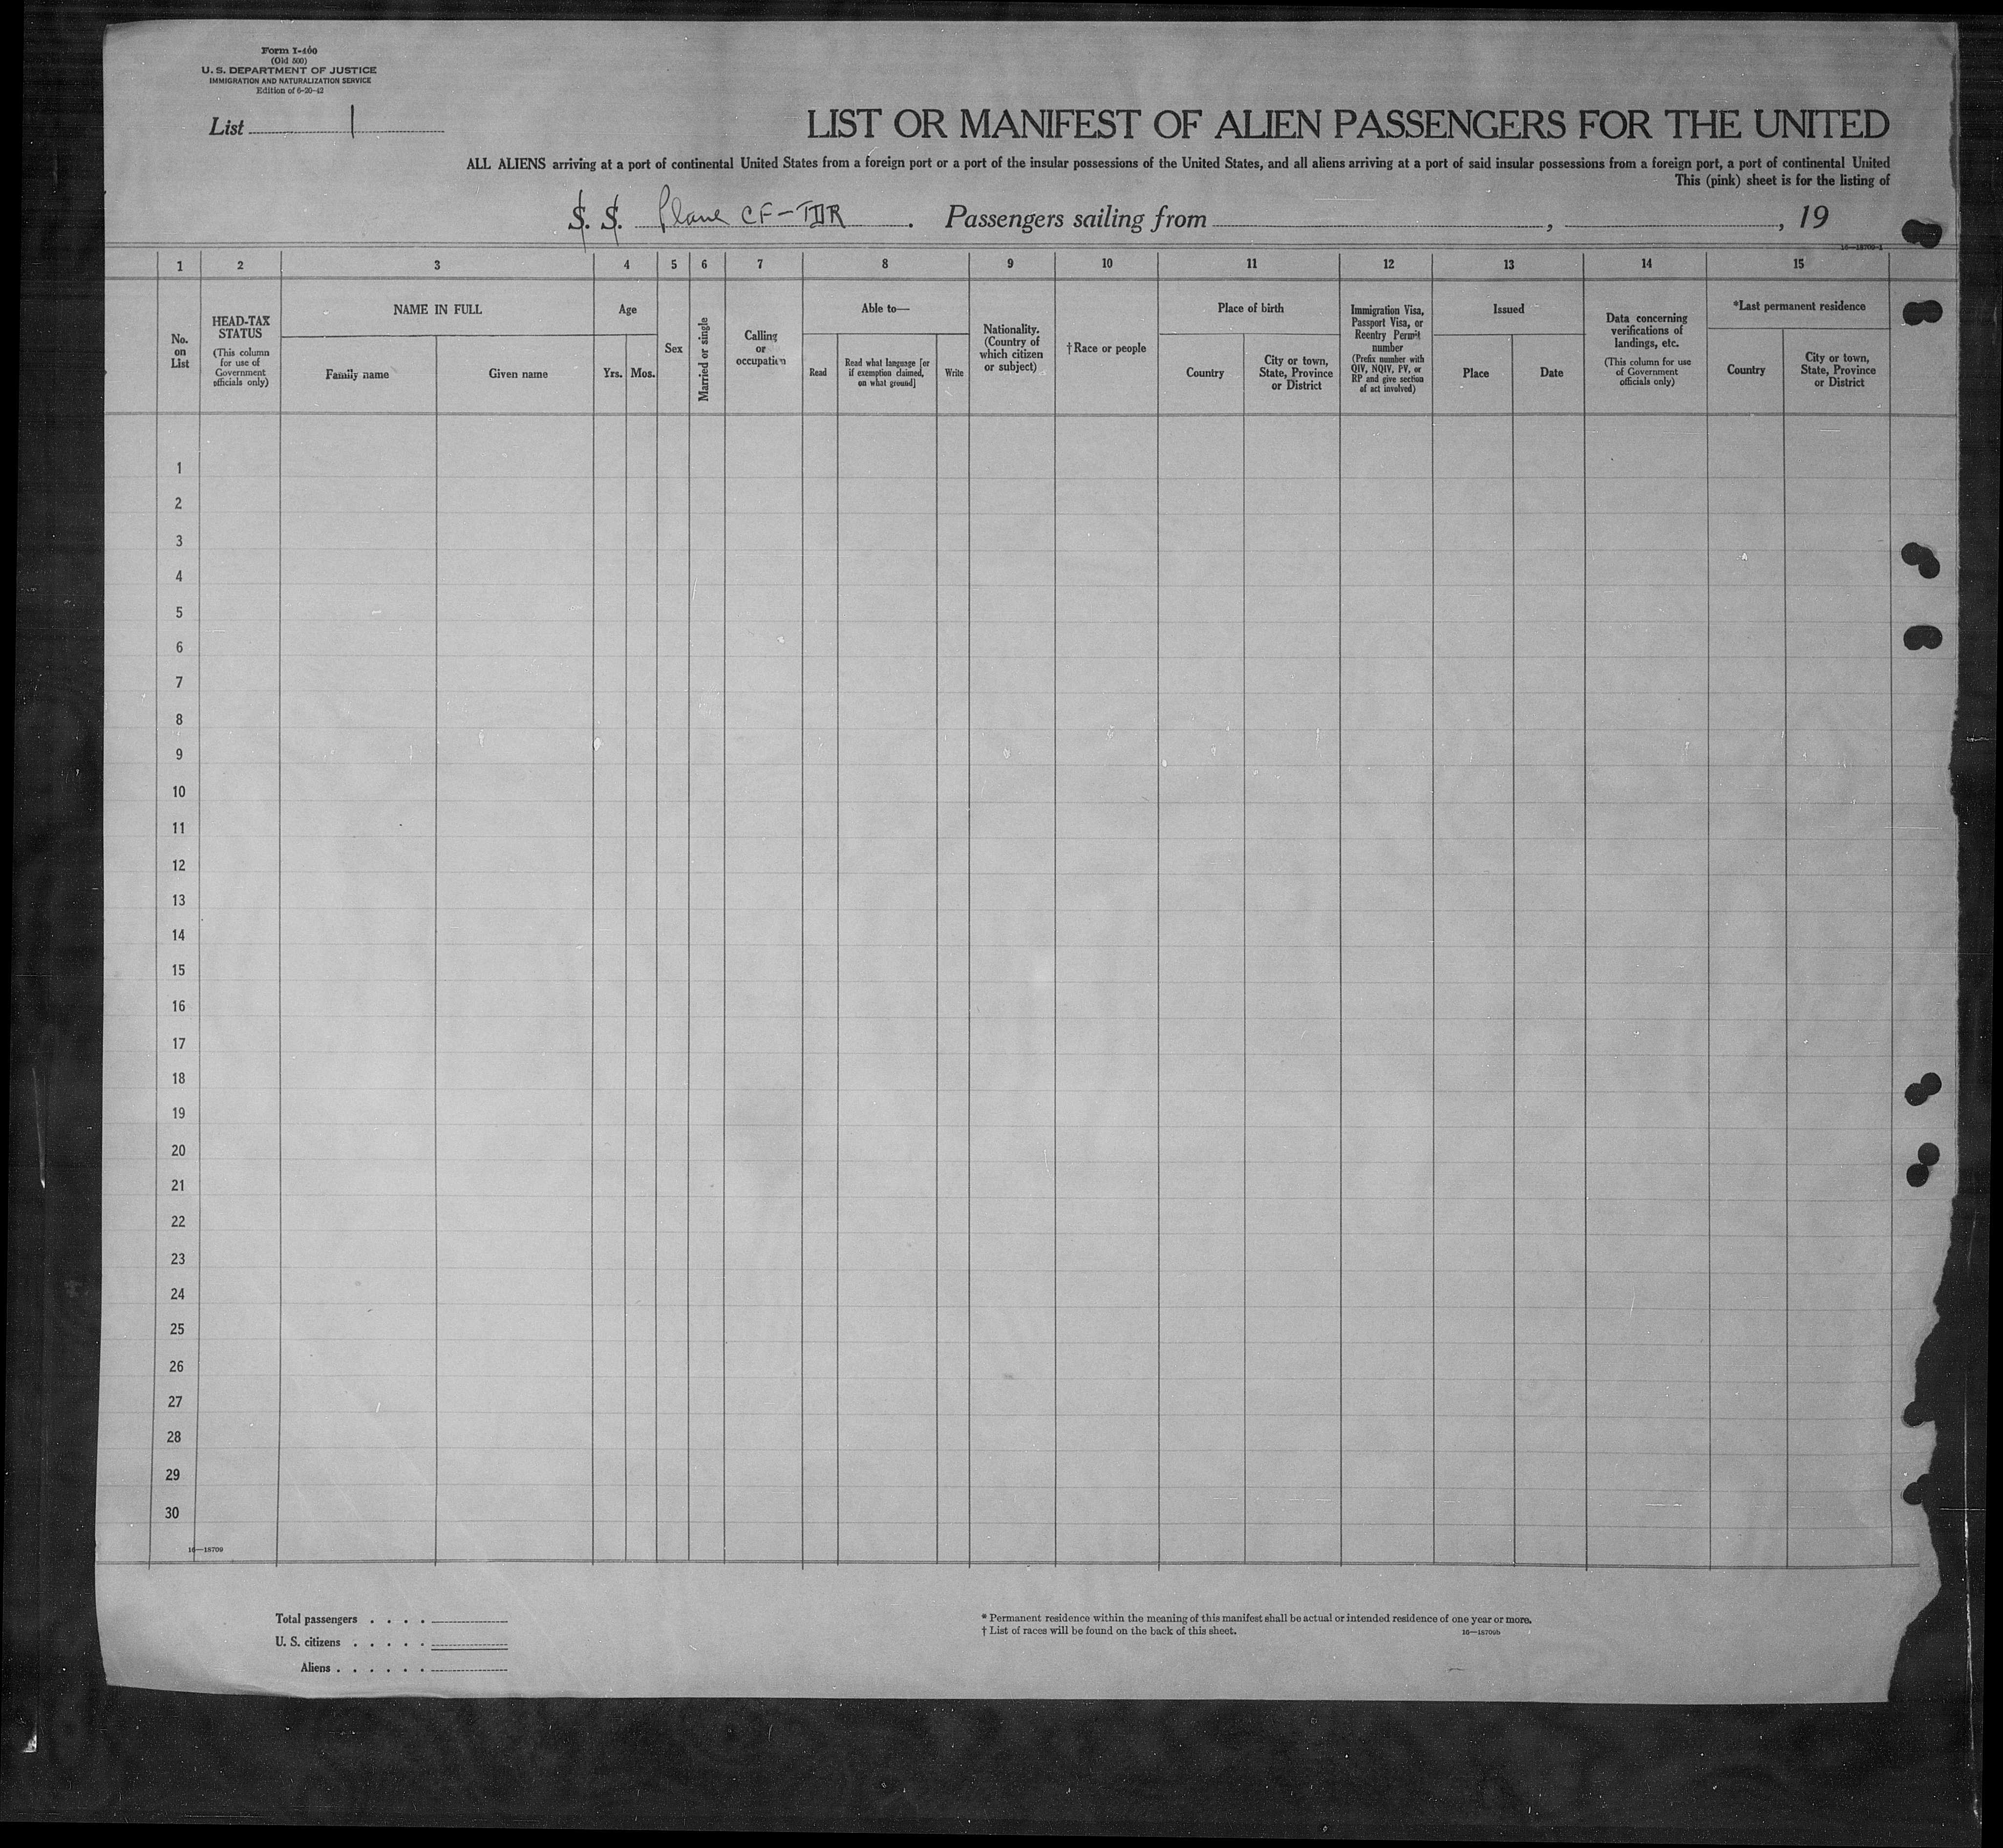 Form I-400
(Old 500)
U. S. DEPARTMENT OF JUSTICE
IMMIGRATION AND NATURALIZATION SERVICE
Edition of 6-20-42
List 1
LIST OR MANIFEST OF ALIEN PASSENGERS FOR THE UNITED
ALL ALIENS arriving at a port of continental United States from a foreign port or a port of the insular possessions of the United States, and all aliens arriving at a port of said insular possessions from a foreign port, a port of continental United
This (pink) sheet is for the listing of
S. S. Plane CF-TDR. Passengers sailing from , , 19
16—18709-1
1 2 3 4 5 6 7 8 9 10 11 12 13 14 15
No.
on
List
HEAD-TAX
STATUS
(This column
for use of
Government
officials only)
NAME IN FULL
Family name
Given name
Age
Yrs.
Mos.
Sex
Married or single
Calling
or
occupation
Able to—
Read
Read what language [or
if exemption claimed,
on what ground]
Write
Nationality.
(Country of
which citizen
or subject)
†Race or people
Place of birth
Country
City or town,
State, Province
or District
Immigration Visa,
Passport Visa, or
Reentry Permit
number
(Prefix number with
QIV, NQIV, PV, or
RP and give section
of act involved)
Issued
Place
Date
Data concerning
verifications of
landings, etc.
(This column for use
of Government
officials only)
*Last permanent residence
Country
City or town,
State, Province
or District
1
2
3
4
5
6
7
8
9
10
11
12
13
14
15
16
17
18
19
20
21
22
23
24
25
26
27
28
29
30
16—18709
Total passengers . . . .
U. S. citizens . . . . .
Aliens . . . . . .
* Permanent residence within the meaning of this manifest shall be actual or intended residence of one year or more.
† List of races will be found on the back of this sheet.
16—18709b